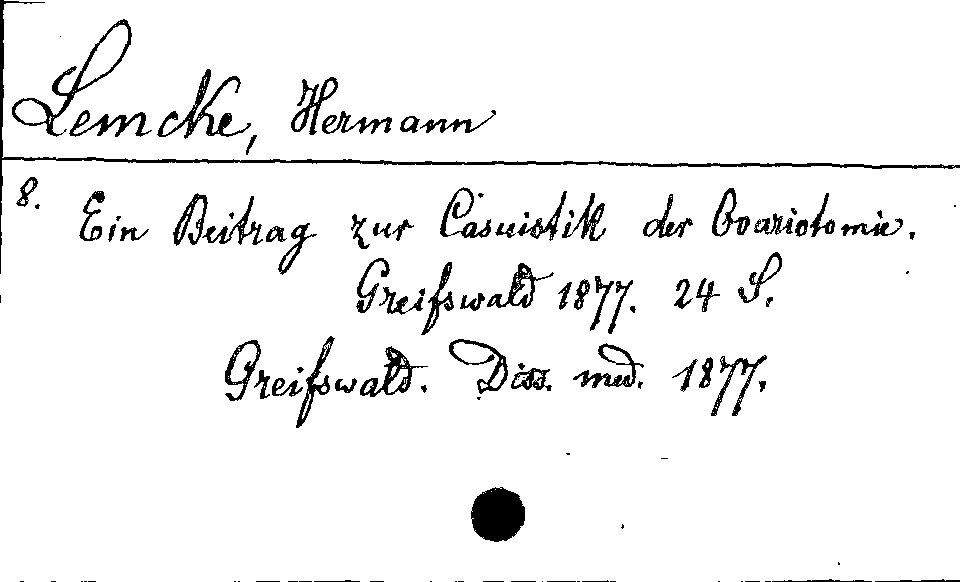 Lemcke, Hermann
8. Ein Beitrag zur Casuistik der Ovariotomie.
Greifswald 1877. 24 S.
Greifswald. Diss. med. 1877.